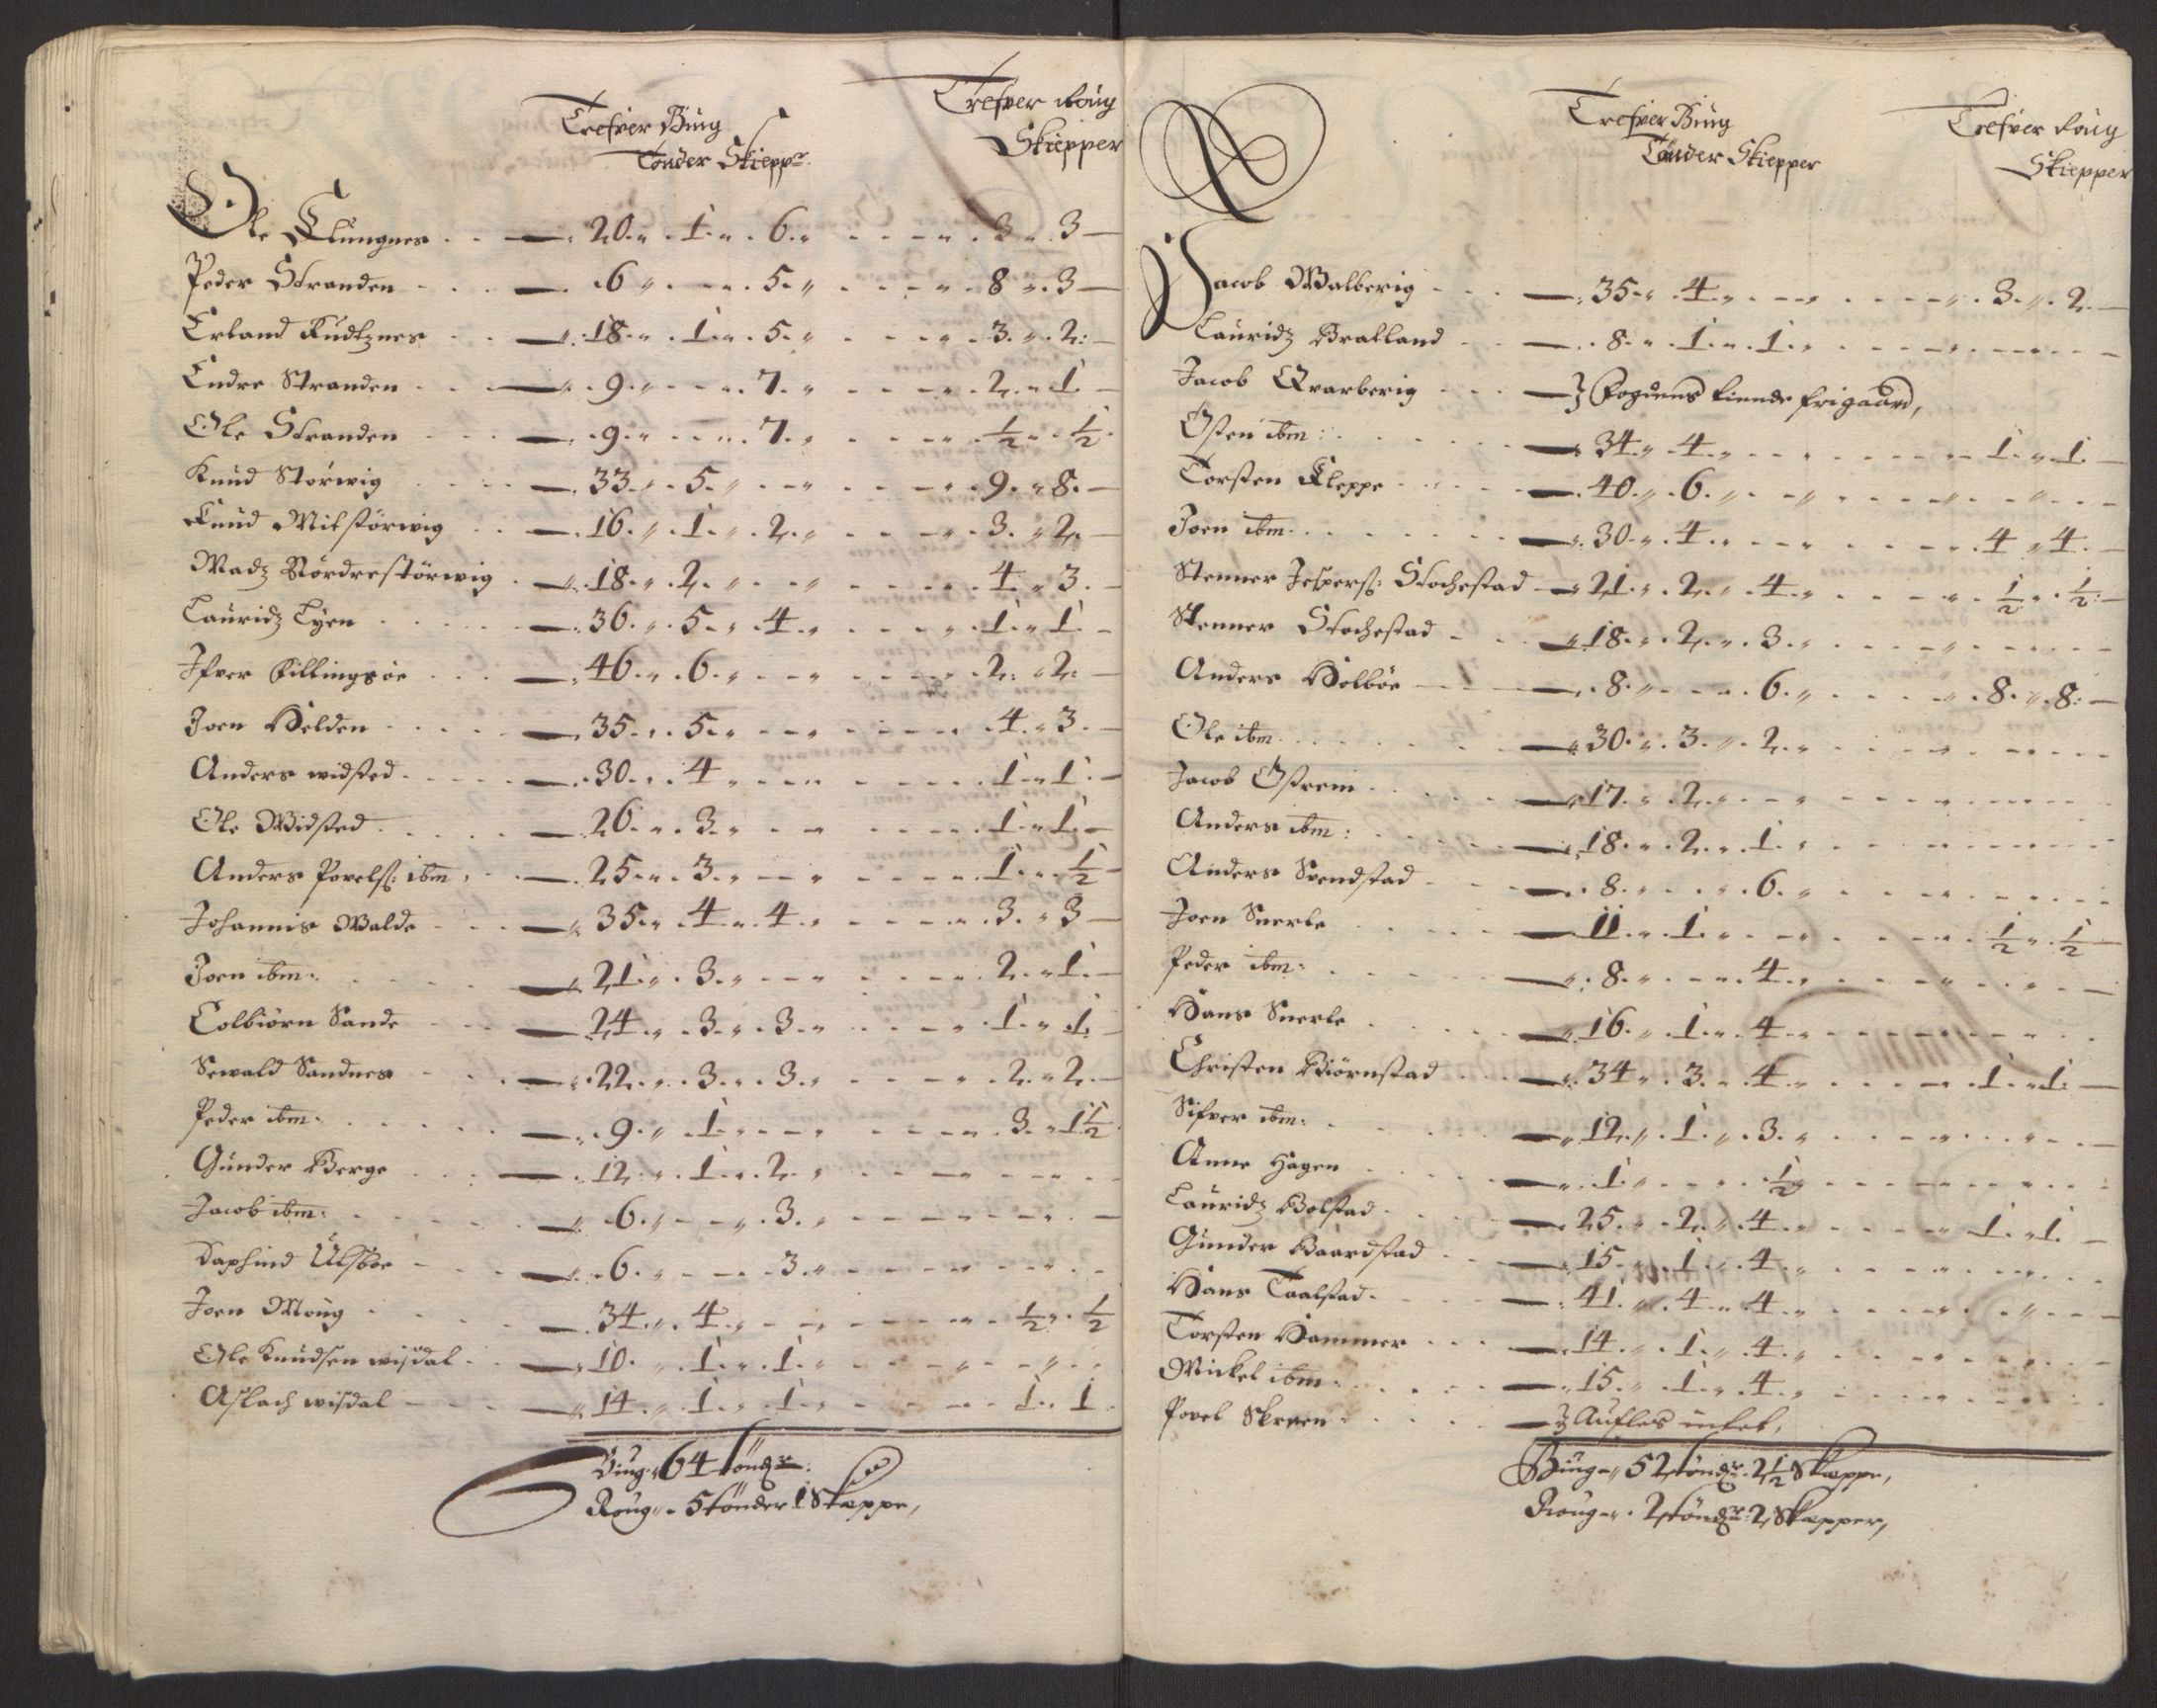 Trefver Biug
Tønder Skiepper
Trefver Roug
Skiepper
Ole Klungnes 20 1 6 3 3
Peder Stranden 6 5 8 3
Erland Rudtznes 18 1 5 3 2
Endre Stranden 9 7 2 1
Ole Stranden 9 7 ½ ½
Knud Störwig 33 5 9 8
Knud Mitstörwig 16 1 2 3 2
Madz Nordrestörwig 18 2 4 3
Lauridz Lyen 36 5 4 1 1
Ifver Fillingsöe 46 6 2 2
Joen Helden 35 5 4 3
Anders widsted 30 4 1 1
Ole Widsted 26 3 1 1
Anders Povelsß: ibm 25 3 1 ½
Johannis Walde 35 4 4 3 3
Joen ibm: 21 3 2 1
Colbiörn Sande 24 3 3 1 1
Sewald Sandnes 22 3 3 2 2
Peder ibm: 9 1 3 1½
Gunder Berge 12 1 2
Jacob ibm: 6 3
Daphind Ulsböe 6 3
Joen Moug 34 4 ½ ½
Ole Knudsen wisdal 10 1 1
Aslach wisdal 14 1 1 1 1
Biug 64 tönder:
Roug 5 tönder 1 Skieppe,
Trefver Biug
Tönder Skiepper
Trefver Roug
Skiepper
Jacob Walberig 35 4 3 2
Lauridz Bralland 8 1 1
Jacob Qvarberig Fogdens tiende frigaard,
Osten ibm: 34 4 1 1
Torsten Kleppe 40 6
Joen ibm 30 4 4 4
Stenner Jespersß: Stochestad 21 2 4 ½ ½
Stenner Stochestad 18 2 3
Anders Holböe 8 6 8 8
Ole ibm 30 3 2
Jacob Ostrem 17 2
Anders ibm: 18 2 1
Anders Svendstad 8 6
Joen Snerle 11 1 ½ ½
Peder ibm: 8 4
Hans Snerle 16 1 4
Christen Biörnstad 34 3 4 1 1
Sifver ibm: 12 1 3
Anne Hagen 1 ½
Lauridz Bolstad 25 2 4 1 1
Gunder Baardstad 15 1 4
Hans Taalstad 41 4 4
Torsten Hammer 14 1 4
Mickel ibm 15 1 4
Povel Skreen Aufles intet,
Biug 52 tönder 2½ Skieppe,
Roug 2 tönder 2 Skiepper,